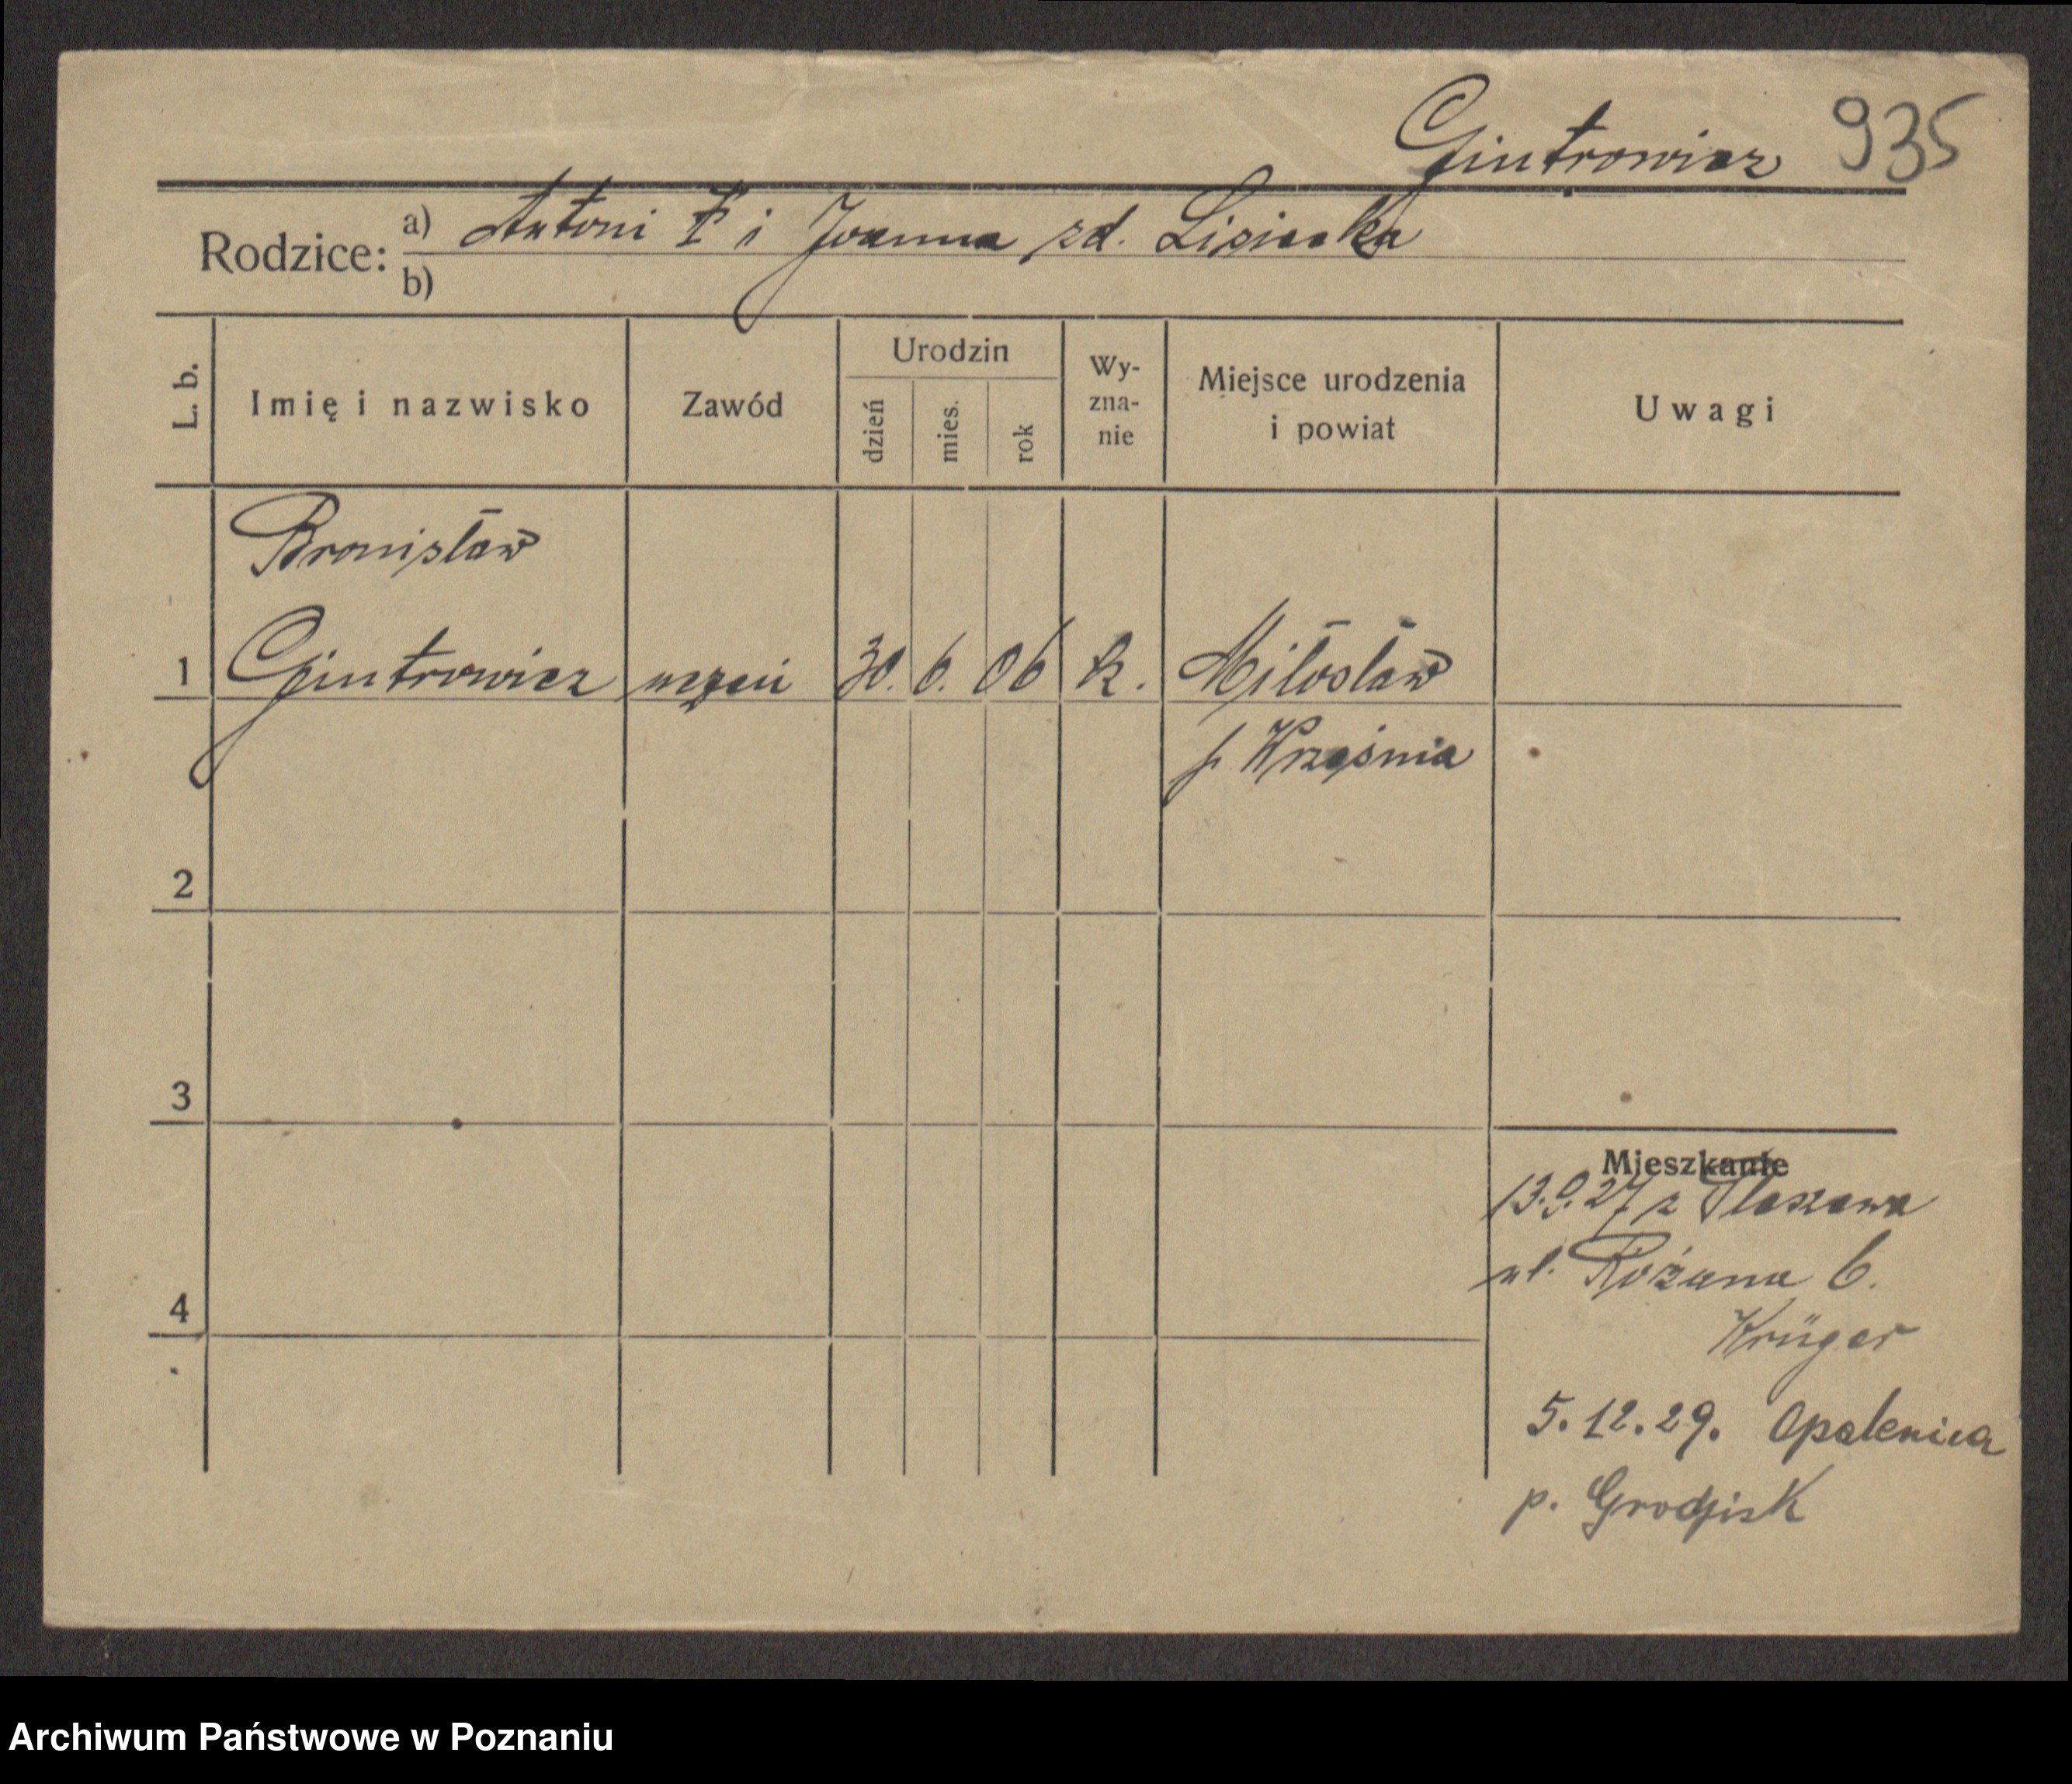 Gintrowicz 935
Rodzice: a) Antoni † i Joanna zd. Lisiecka
b)
L. b.
Imię i nazwisko
Zawód
Urodzin
dzień
mies.
rok
Wy-
zna-
nie
Miejsce urodzenia
i powiat
Uwagi
Bronisław
1 Gintrowicz uczeń 30. 6. 06 k. Miłosław
p. Września
2
3
4
Mieszkanie
13.9.27 z
ul. Różana 6.
Krüger
5.12.29. Opalenica
p. Grodzisk
Archiwum Państwowe w Poznaniu